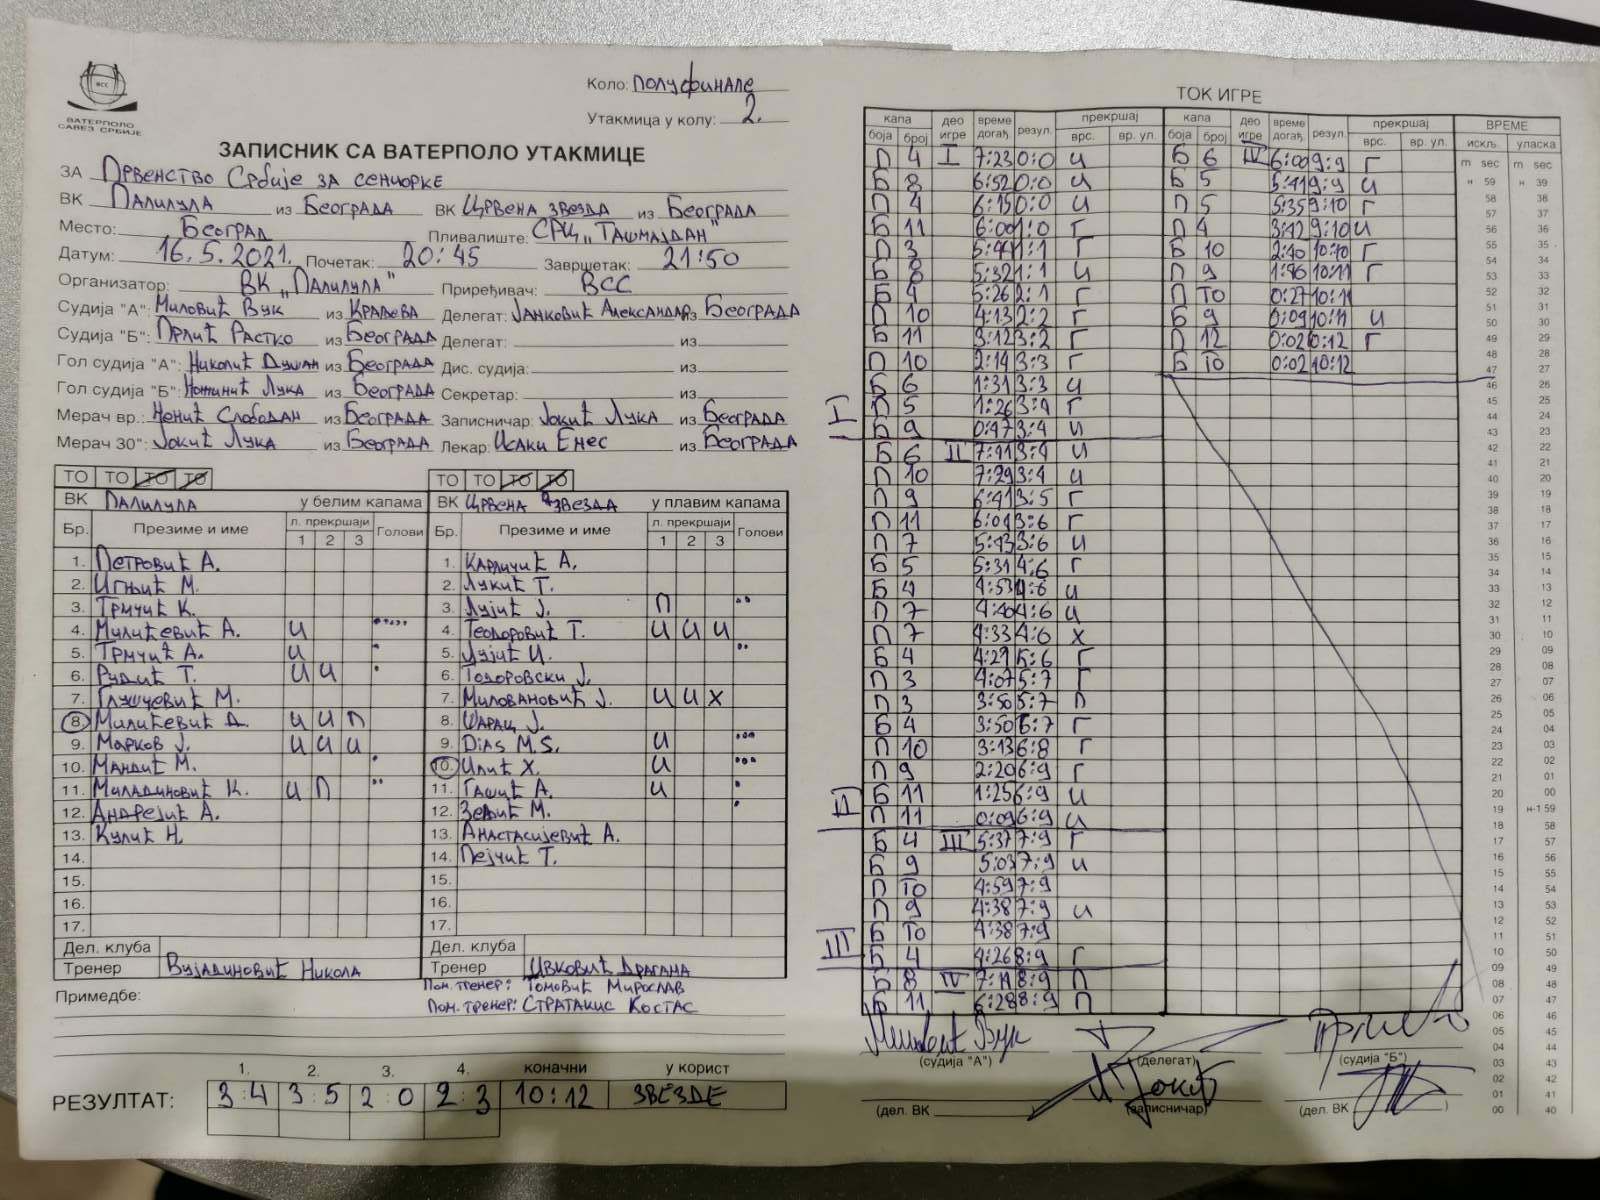 ВАТЕРПОЛО
САВЕЗ СРБИЈЕ
Коло: ПОЛУФИНАЛЕ
Утакмица у колу: 2.
ЗАПИСНИК СА ВАТЕРПОЛО УТАКМИЦЕ
ЗА ПРВЕНСТВО СРБИЈЕ ЗА СЕНИОРКЕ
ВК ПАЛИЛУЛА из БЕОГРАДА ВК ЦРВЕНА ЗВЕЗДА из БЕОГРАДА
Место: БЕОГРАД Пливалиште: СРЦ „ТАШМАЈДАН"
Датум: 16.5.2021. Почетак: 20:45 Завршетак: 21:50
Организатор: ВК „ПАЛИЛУЛА" Приређивач: ВСС
Судија "А": МИЛОВИЋ ВУК из КРАЉЕВА Делегат: ЈАНКОВИЋ АЛЕКСАНДАР из БЕОГРАДА
Судија "Б": ПРЛИЋ РАСТКО из БЕОГРАДА Делегат: из
Гол судија "А": НИКОЛИЋ ДУШАН из БЕОГРАДА Дис. судија: из
Гол судија "Б": ЛУКА из БЕОГРАДА Секретар: из
Мерач вр.: НЕНИЋ СЛОБОДАН из БЕОГРАДА Записничар: ЈОКИЋ ЛУКА из БЕОГРАДА
Мерач 30": ЈОКИЋ ЛУКА из БЕОГРАДА Лекар: ИСАКИ ЕНЕС из БЕОГРАДА
ТО ТО ТО ТО ТО ТО ТО ТО
ВК ПАЛИЛУЛА у белим капама ВК ЦРВЕНА ЗВЕЗДА у плавим капама
Бр. Презиме и име л. прекршаји 1 2 3 Голови Бр. Презиме и име л. прекршаји 1 2 3 Голови
1. ПЕТРОВИЋ А. 1. КАРЛИЧИЋ А.
2. ИГЊИЋ М. 2. ЛУКИЋ Т.
3. ТРМЧИЋ К. 3. ЛУЈИЋ Ј. П ..
4. МИЛИЋЕВИЋ А. И ..... 4. ТЕОДОРОВИЋ Т. И И И
5. ТРМЧИЋ А. И . 5. ЛУЈИЋ И. ..
6. РУДИЋ Т. И И . 6. ТОДОРОВСКИ Ј.
7. ГЛУШЧЕВИЋ М. 7. МИЛОВАНОВИЋ Ј. И И Х
8. МИЛИЋЕВИЋ Д. И И П 8. ШАРАЦ Ј.
9. МАРКОВ Ј. И И И 9. DIAS M.S. И ...
10. МАНДИЋ М. . 10. ИЛИЋ Х. И ...
11. МИЛАДИНОВИЋ К. И П .. 11. ГАШИЋ А. И .
12. АНДРЕЈИЋ А. 12. М. .
13. КУЛИЋ Н. 13. АНАСТАСИЈЕВИЋ А.
14. 14. ПЕЈЧИЋ Т.
15. 15.
16. 16.
17. 17.
Дел. клуба Дел. клуба
Тренер ВУЈАДИНОВИЋ НИКОЛА Тренер ИВКОВИЋ ДРАГАНА
Примедбе: ПОМ. ТРЕНЕР: ТОМОВИЋ МИРОСЛАВ
ПОМ. ТРЕНЕР: СТРАТАКИС КОСТАС
1. 2. 3. 4. коначни у корист
РЕЗУЛТАТ: 3:4 3:5 2:0 2:3 10:12 ЗВЕЗДЕ
ТОК ИГРЕ
капа део игре време догађ. резул. прекршај капа део игре време догађ. резул. прекршај ВРЕМЕ
боја број врс. вр. ул. боја број врс. вр. ул. искљ. уласка
m sec m sec
П 4 I 7:23 0:0 И
Б 8 6:52 0:0 И
П 4 6:15 0:0 И
Б 11 6:00 1:0 Г
П 3 5:44 1:1 Г
Б 8 5:32 1:1 И
Б 4 5:26 2:1 Г
П 10 4:13 2:2 Г
Б 11 3:12 3:2 Г
П 10 2:14 3:3 Г
Б 6 1:31 3:3 И
П 5 1:26 3:4 Г
Б 9 0:47 3:4 И
I
Б 6 II 7:41 3:4 И
П 10 7:29 3:4 И
П 9 6:41 3:5 Г
П 11 6:01 3:6 Г
П 7 5:43 3:6 И
Б 5 5:31 4:6 Г
Б 4 4:53 4:6 И
П 7 4:6 И
П 7 4:33 4:6 Х
Б 4 4:21 5:6 Г
П 3 4:07 5:7 Г
П 3 3:50 5:7 П
Б 4 3:50 6:7 Г
П 10 3:13 6:8 Г
П 9 2:20 6:9 Г
Б 11 1:25 6:9 И
П 11 0:09 6:9 И
II
Б 4 III 5:37 7:9 Г
Б 9 5:03 7:9 И
П ТО 4:59 7:9
П 9 4:38 7:9 И
Б ТО 4:38 7:9
Б 4 4:26 8:9 Г
III
Б 8 IV 7:11 8:9 П
Б 11 6:28 8:9 П
Б 6 IV 6:00 9:9 Г
Б 5 5:41 9:9 И
П 5 5:35 9:10 Г
П 4 3:42 9:10 И
Б 10 2:10 10:10 Г
П 9 10:11 Г
П ТО 0:27 10:11
Б 9 0:09 10:11 И
П 12 0:02 10:12 Г
Б ТО 0:02 10:12
н 59 н 39
58 38
57 37
56 36
55 35
54 34
53 33
52 32
51 31
50 30
49 29
48 28
47 27
46 26
45 25
44 24
43 23
42 22
41 21
40 20
39 19
38 18
37 17
36 16
35 15
34 14
33 13
32 12
31 11
30 10
29 09
28 08
27 07
26 06
25 05
24 04
23 03
22 02
21 01
20 00
19 н-1 59
18 58
17 57
16 56
15 55
14 54
13 53
12 52
11 51
10 50
09 49
08 48
07 47
06 46
05 45
04 44
03 43
02 42
01 41
00 40
(судија "А") (делегат) (судија "Б")
(дел. ВК ) (записничар) (дел. ВК )